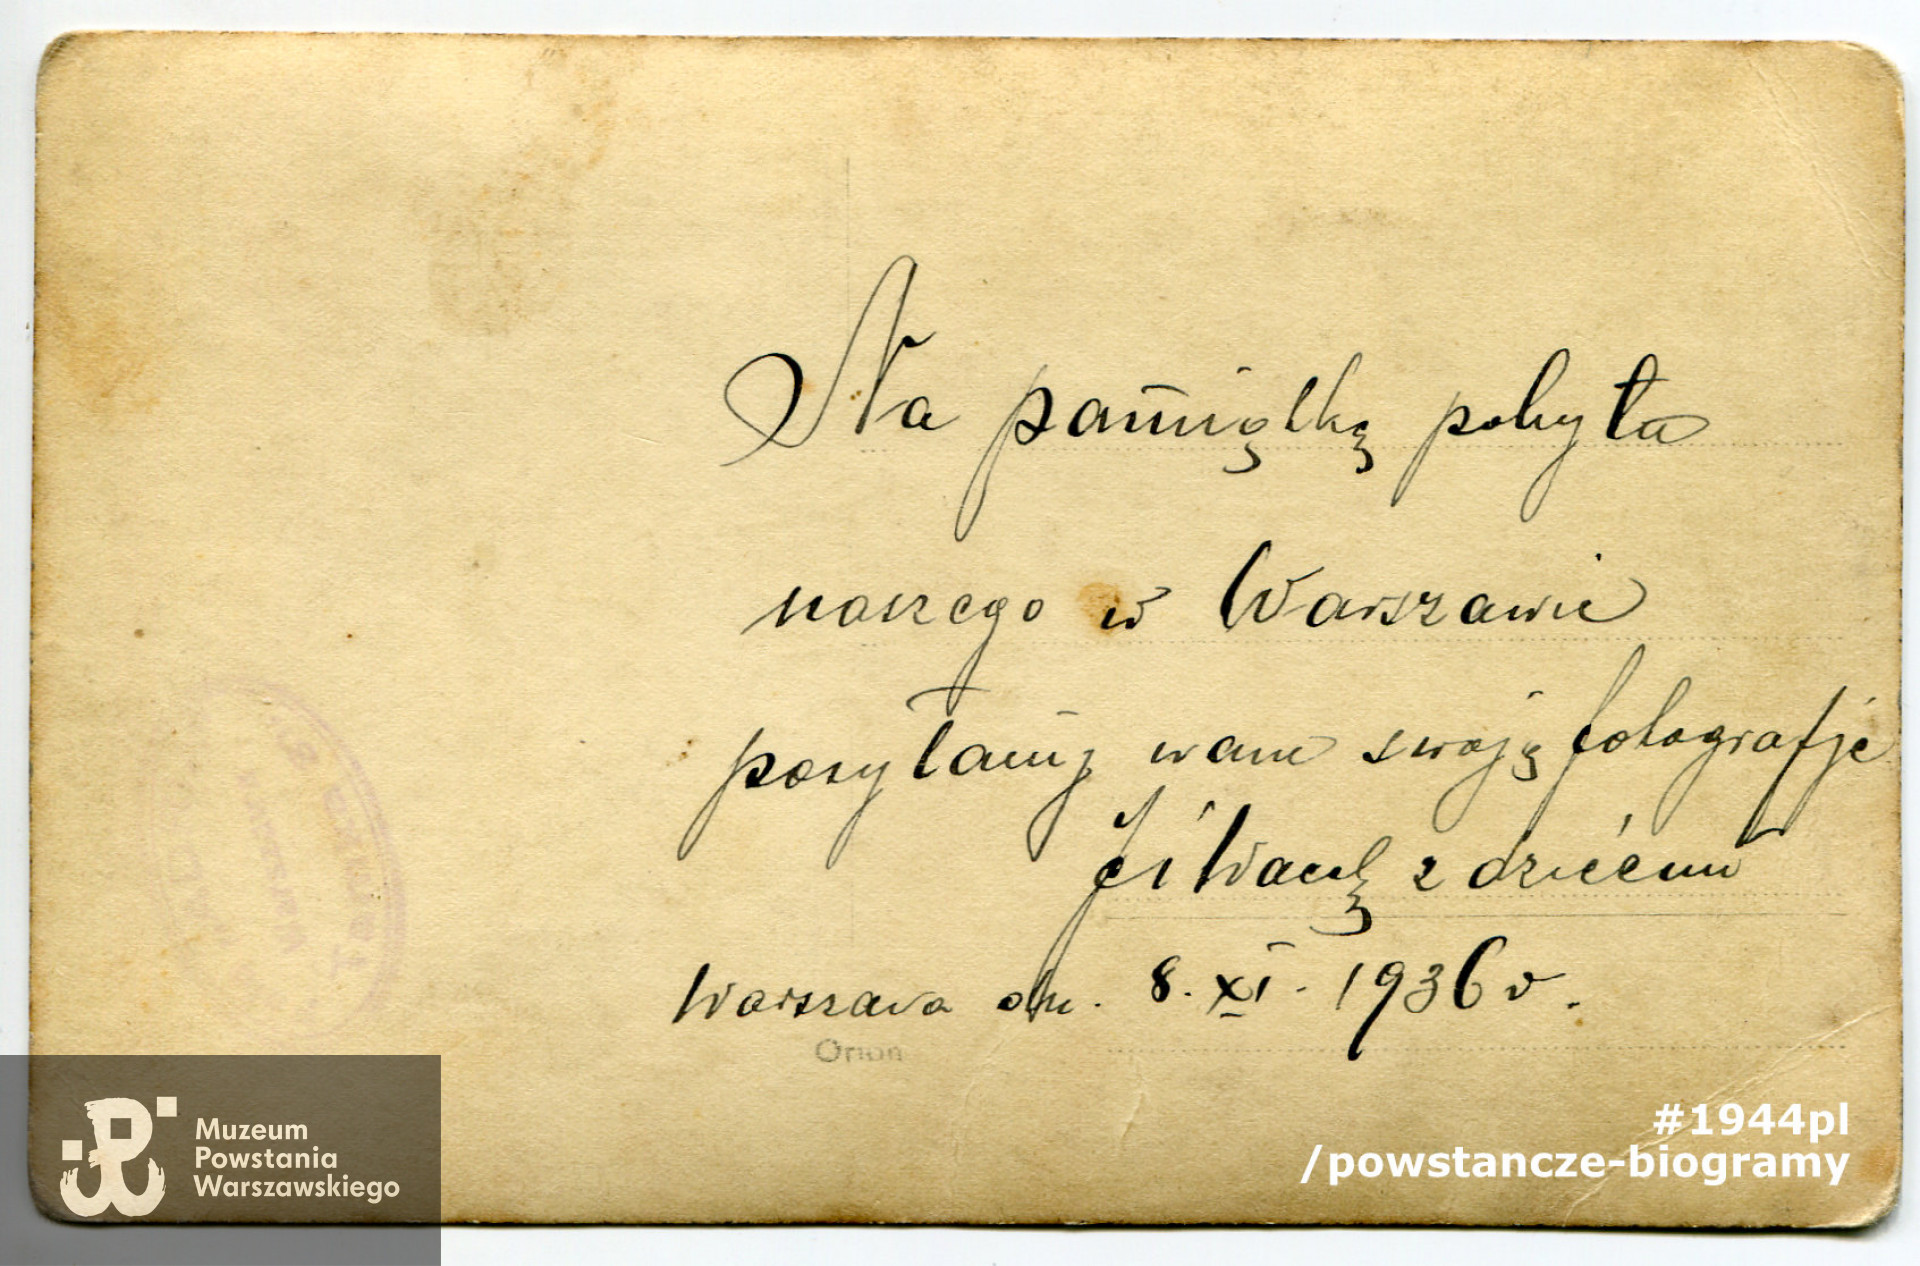 Na pamiątkę pobytu
naszego w Warszawie
posyłamy wam swoją fotografje
z dziećmi
Warszawa dn. 8. XI. 1936 r.
Orion
Muzeum
Powstania
Warszawskiego
#1944pl
/powstancze-biogramy